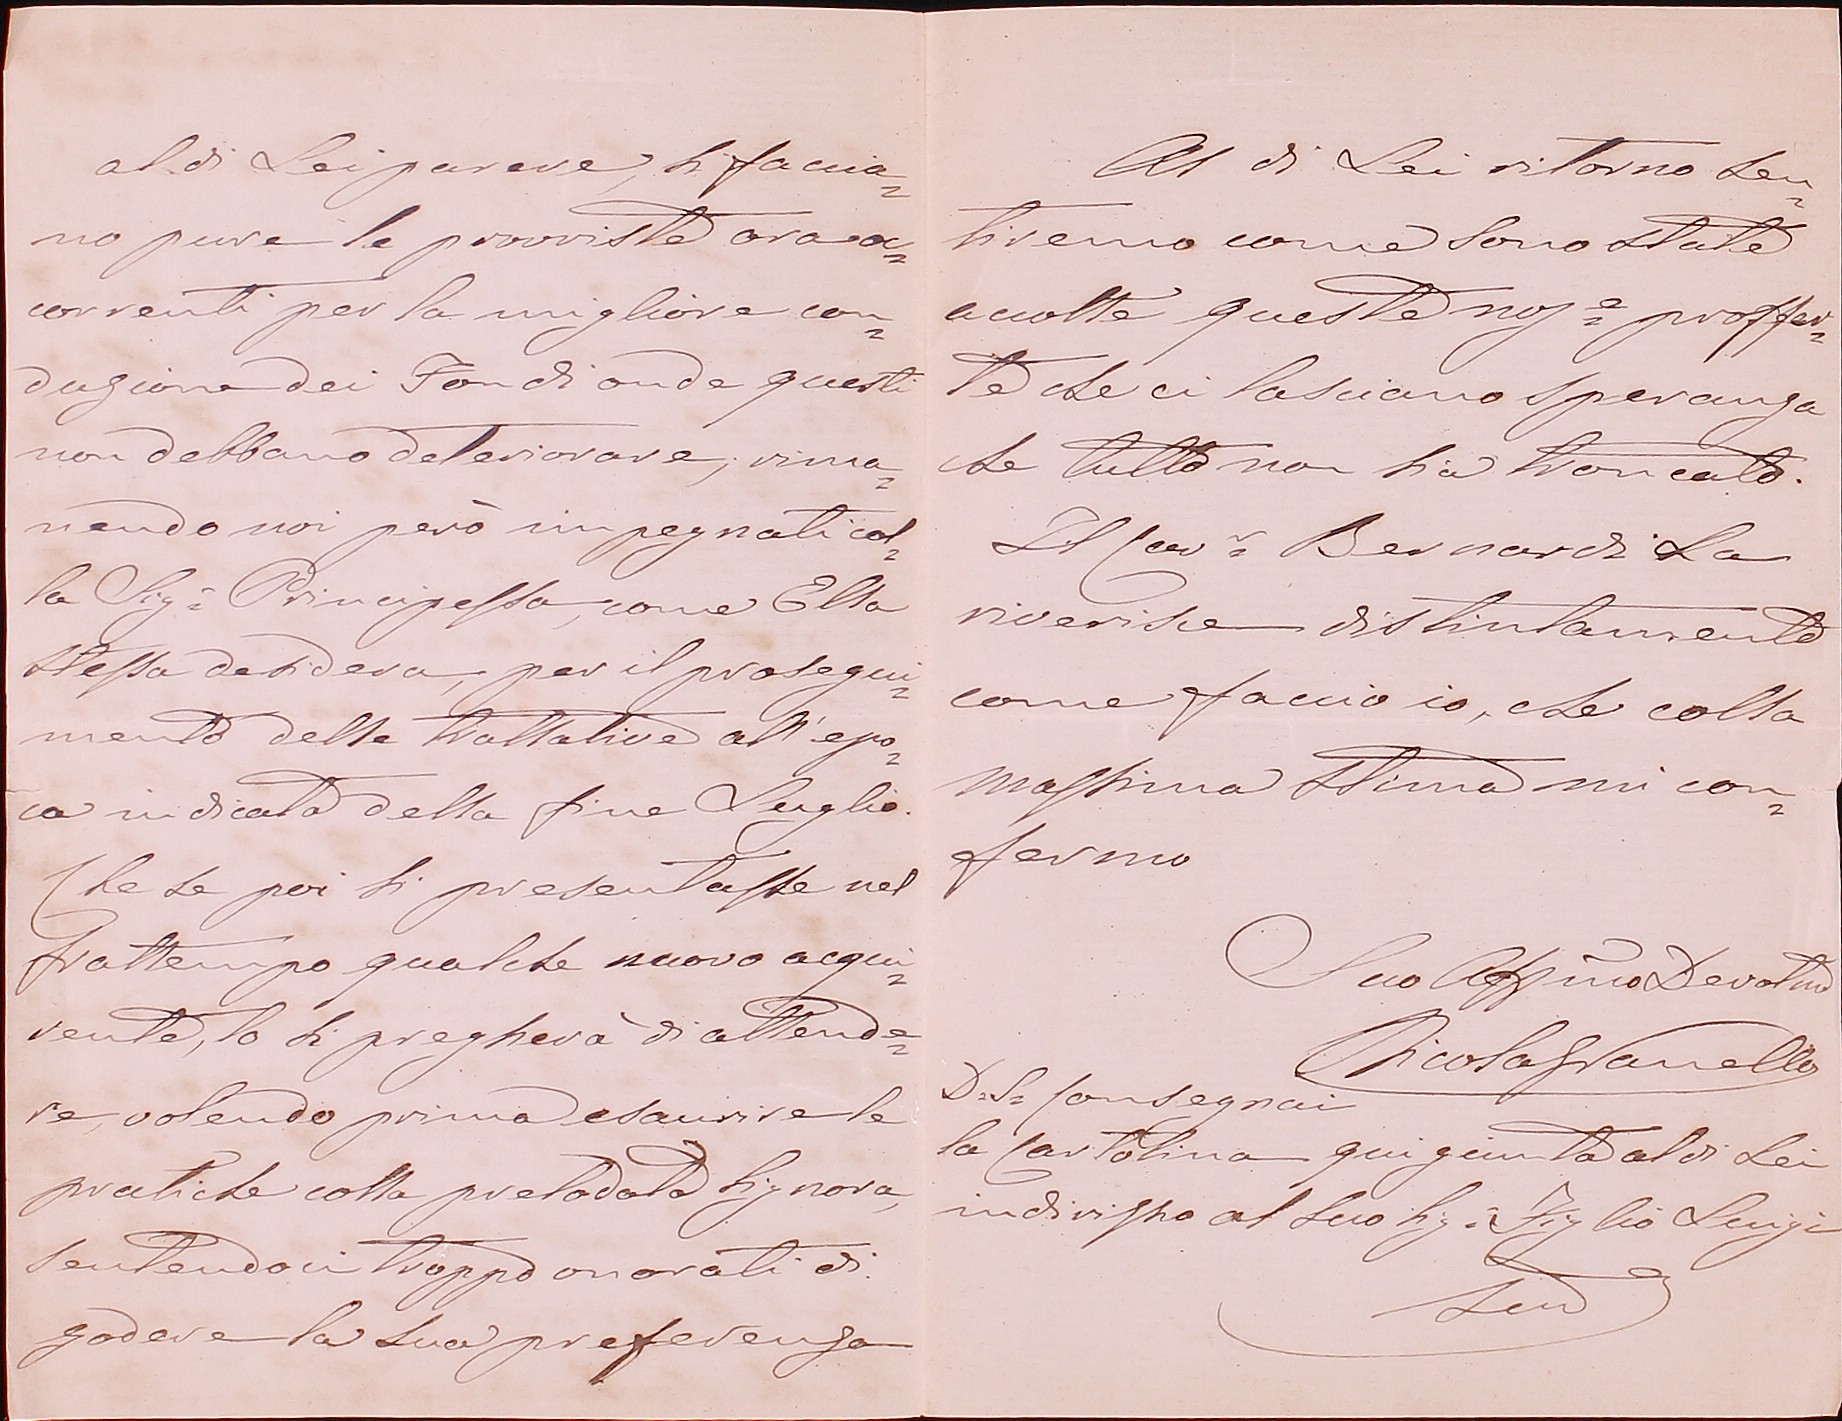 al di Lei parere, si faccia=
no pure le provviste ora oc=
correnti per la migliore con=
duzione dei Fondi onde questi
non debbano deteriorare, rima=
nendo noi però impegnati col=
la Sig.ª Principessa, come Ella
stessa desidera, per il prosegui=
mento delle trattative all'epo=
ca indicata della fine Luglio.
Che se poi si presentasse nel
frattempo qualche nuovo acqui=
rente, lo si pregherà di attende=
re, volendo prima esaurire le
pratiche colla prelodata Signora,
sentendoci troppo onorati di
godere la sua preferenza
Al di Lei ritorno sen=
tiremo come sono state
accolte queste nos.e proffer=
te che ci lasciano speranza
che tutto non sia troncato.
Il Cav.r Bernardi La
riverisce distintamente
come faccio io, che colla
massima stima mi con=
fermo
Suo Aff.mo Devotmo
Nicola Granello
D.S. Consegnai
la Cartolina qui giunta al di Lei
indirisso al suo Sig.r Figlio Luigi